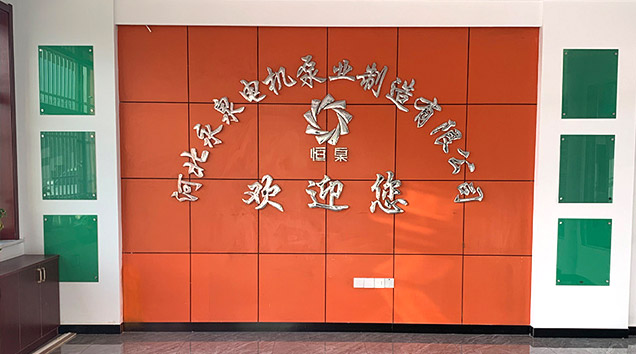 河北永泉电机泵业制造有限公司
恒泉
欢迎您